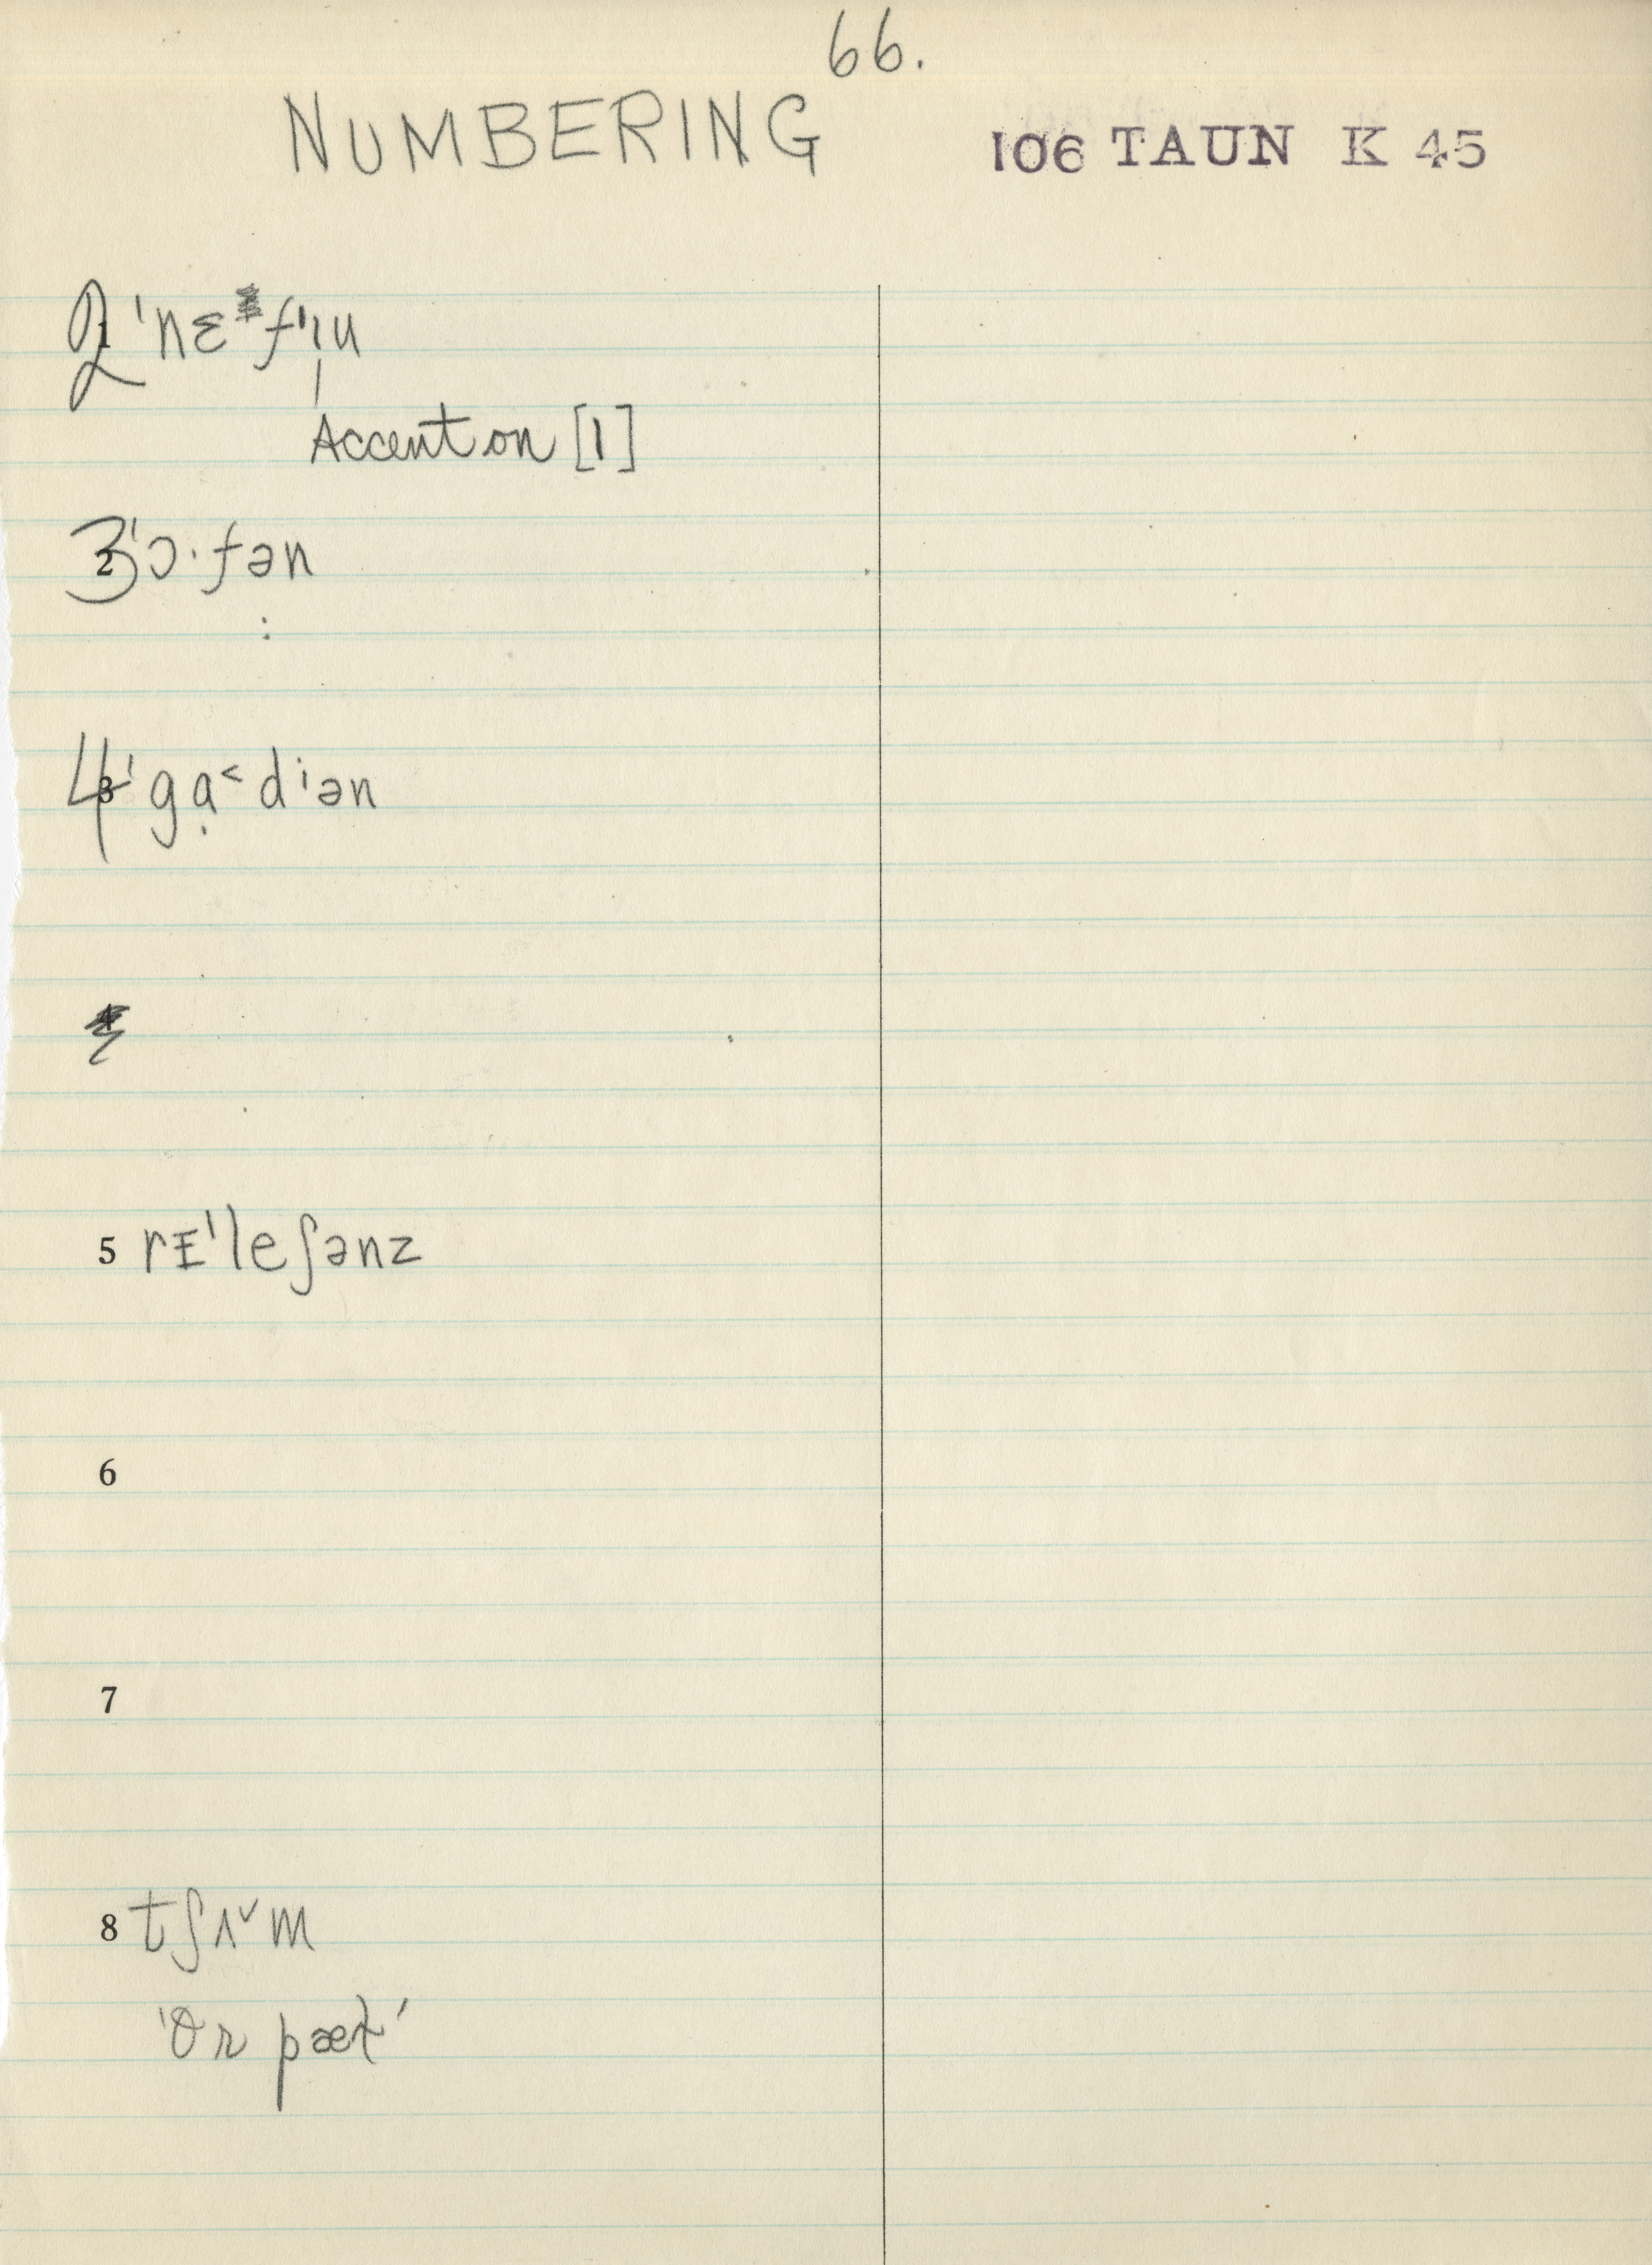 66.
NUMBERING 106 TAUN K 45
2 ˈnɛfˈɪu
Accent on [ɪ]
3 ˈɔ·fən
:
4 ˈgạ˂dᶦən
5 rɪˈleʃənz
6
7
8 tʃʌ˅m
'Or pæl'